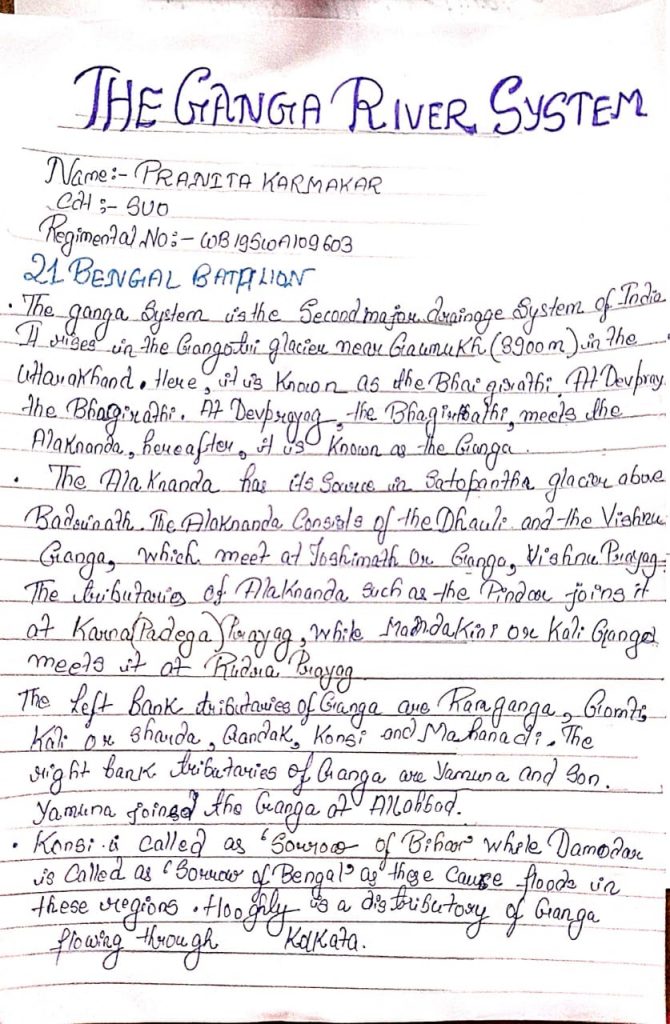 THE GANGA RIVER SYSTEM
Name:- PRANITA KARMAKAR
Cdt :- SUO
Regimental No:- WB19SWA109603
21 BENGAL BATALION
• The ganga System is the Second major drainage System of India
It rises in the Gangotri glacier near Gaumukh (3900m) in the
Uttarakhand. Here, it is Known as the Bhai girathi. At Devpray.
the Bhagirathi. At Devprayag, the Bhagirathi, meets the
Alaknanda, hereafter, it is Known as the Ganga.
• The Alaknanda has its Source in Satopantha glacier above
Badrinath. The Alaknanda Consists of the Dhauli and the Vishnu
Ganga, which meet at Joshimath or Ganga, Vishnu Prayag.
The tributaries of Alaknanda such as the Pindar joins it
at Karna (Padega) Prayag, while Mandakini or Kali Ganga
meets it at Rudra Prayag
The Left Bank tributaries of Ganga are Ramganga, Gomti,
Kali or Sharda, Gandak, Konsi and Mahanadi. The
right bank tributaries of Ganga are Yamuna and Son.
Yamuna joined the Ganga at Allabbad.
• Konsi is called as 'Sorrow of Bihar' while Damodar
is Called as 'Sorrow of Bengal' as these Cause floods in
these regions. Hooghly is a distributory of Ganga
flowing through Kolkata.